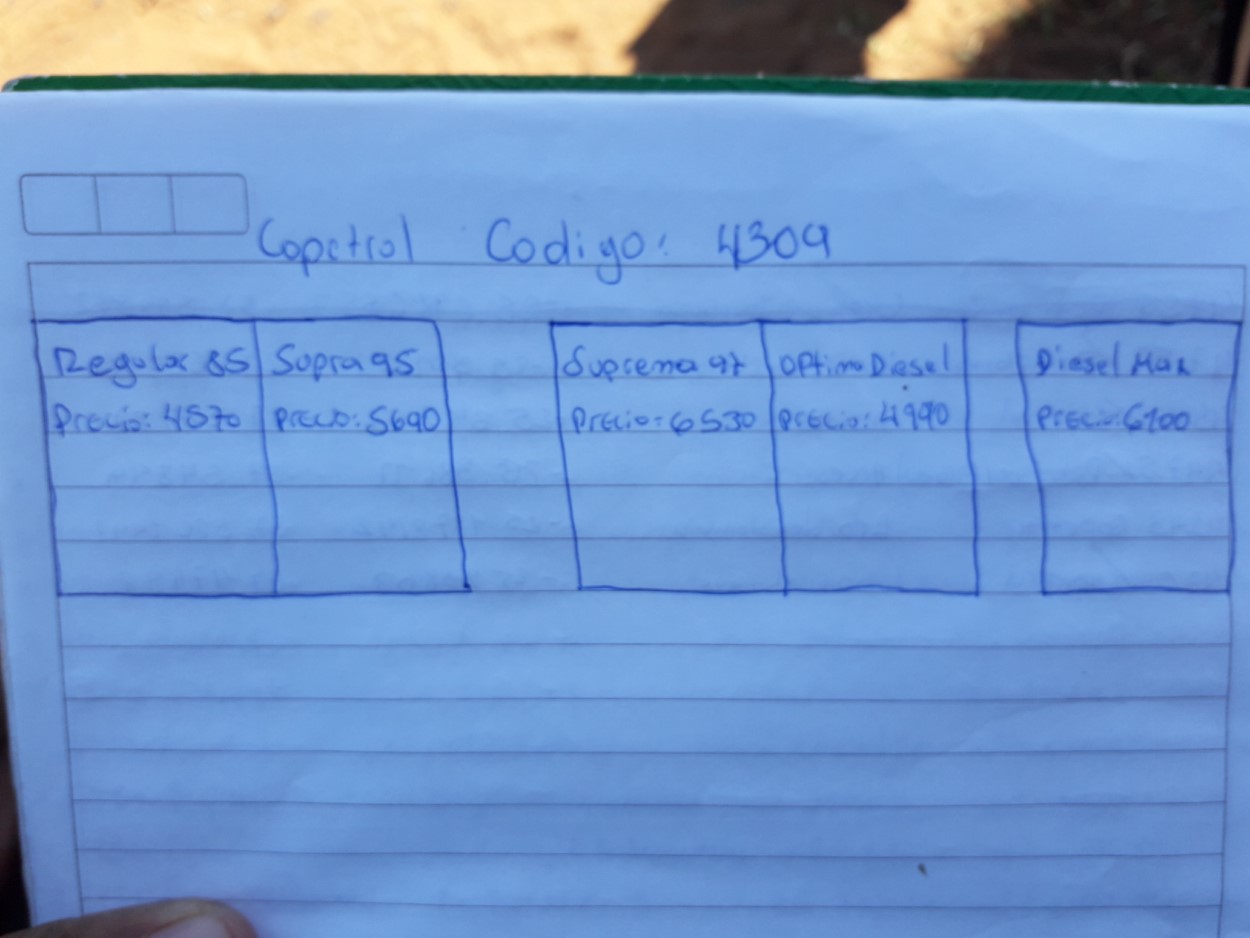 Copetrol Codigo: 4309
Regular 85 Supra 95 Suprema 97 OPtimo Diesel Diesel Max
Precio: 4870 Precio: 5690 Precio: 6530 Precio: 4990 Precio: